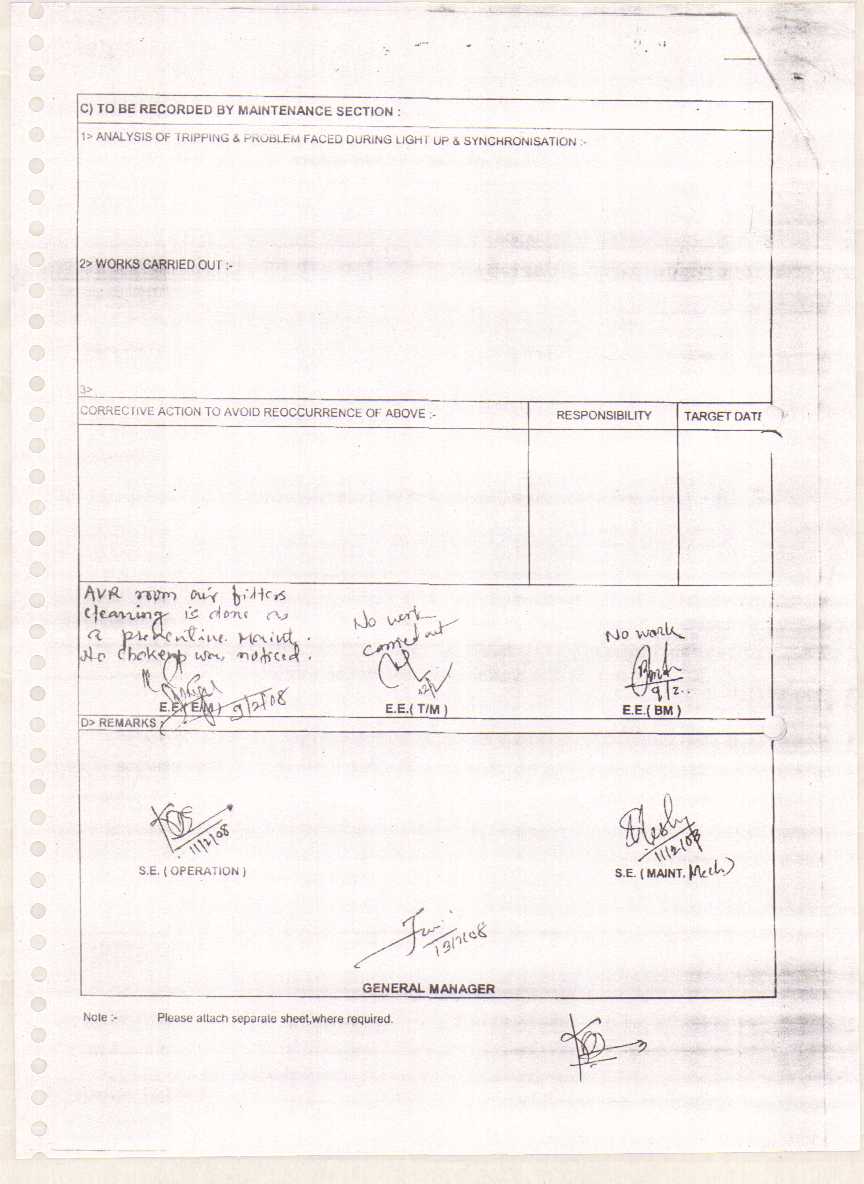 C) TO BE RECORDED BY MAINTENANCE SECTION :
1> ANALYSIS OF TRIPPING & PROBLEM FACED DURING LIGHT UP & SYNCHRONISATION :-
2> WORKS CARRIED OUT :-
3>
CORRECTIVE ACTION TO AVOID REOCCURRENCE OF ABOVE :- RESPONSIBILITY TARGET DATE
AVR room air filters
cleaning is done as
a preventive maint.
No chokeup was noticed.
9/2/08
E.E.( E/M )
No work
carried out
E.E.( T/M )
No work
9/2
E.E.( BM )
D> REMARKS :
11/2/08
S.E. ( OPERATION )
11/2/08
S.E. ( MAINT. Mech.)
13/2/08
GENERAL MANAGER
Note :- Please attach separate sheet,where required.